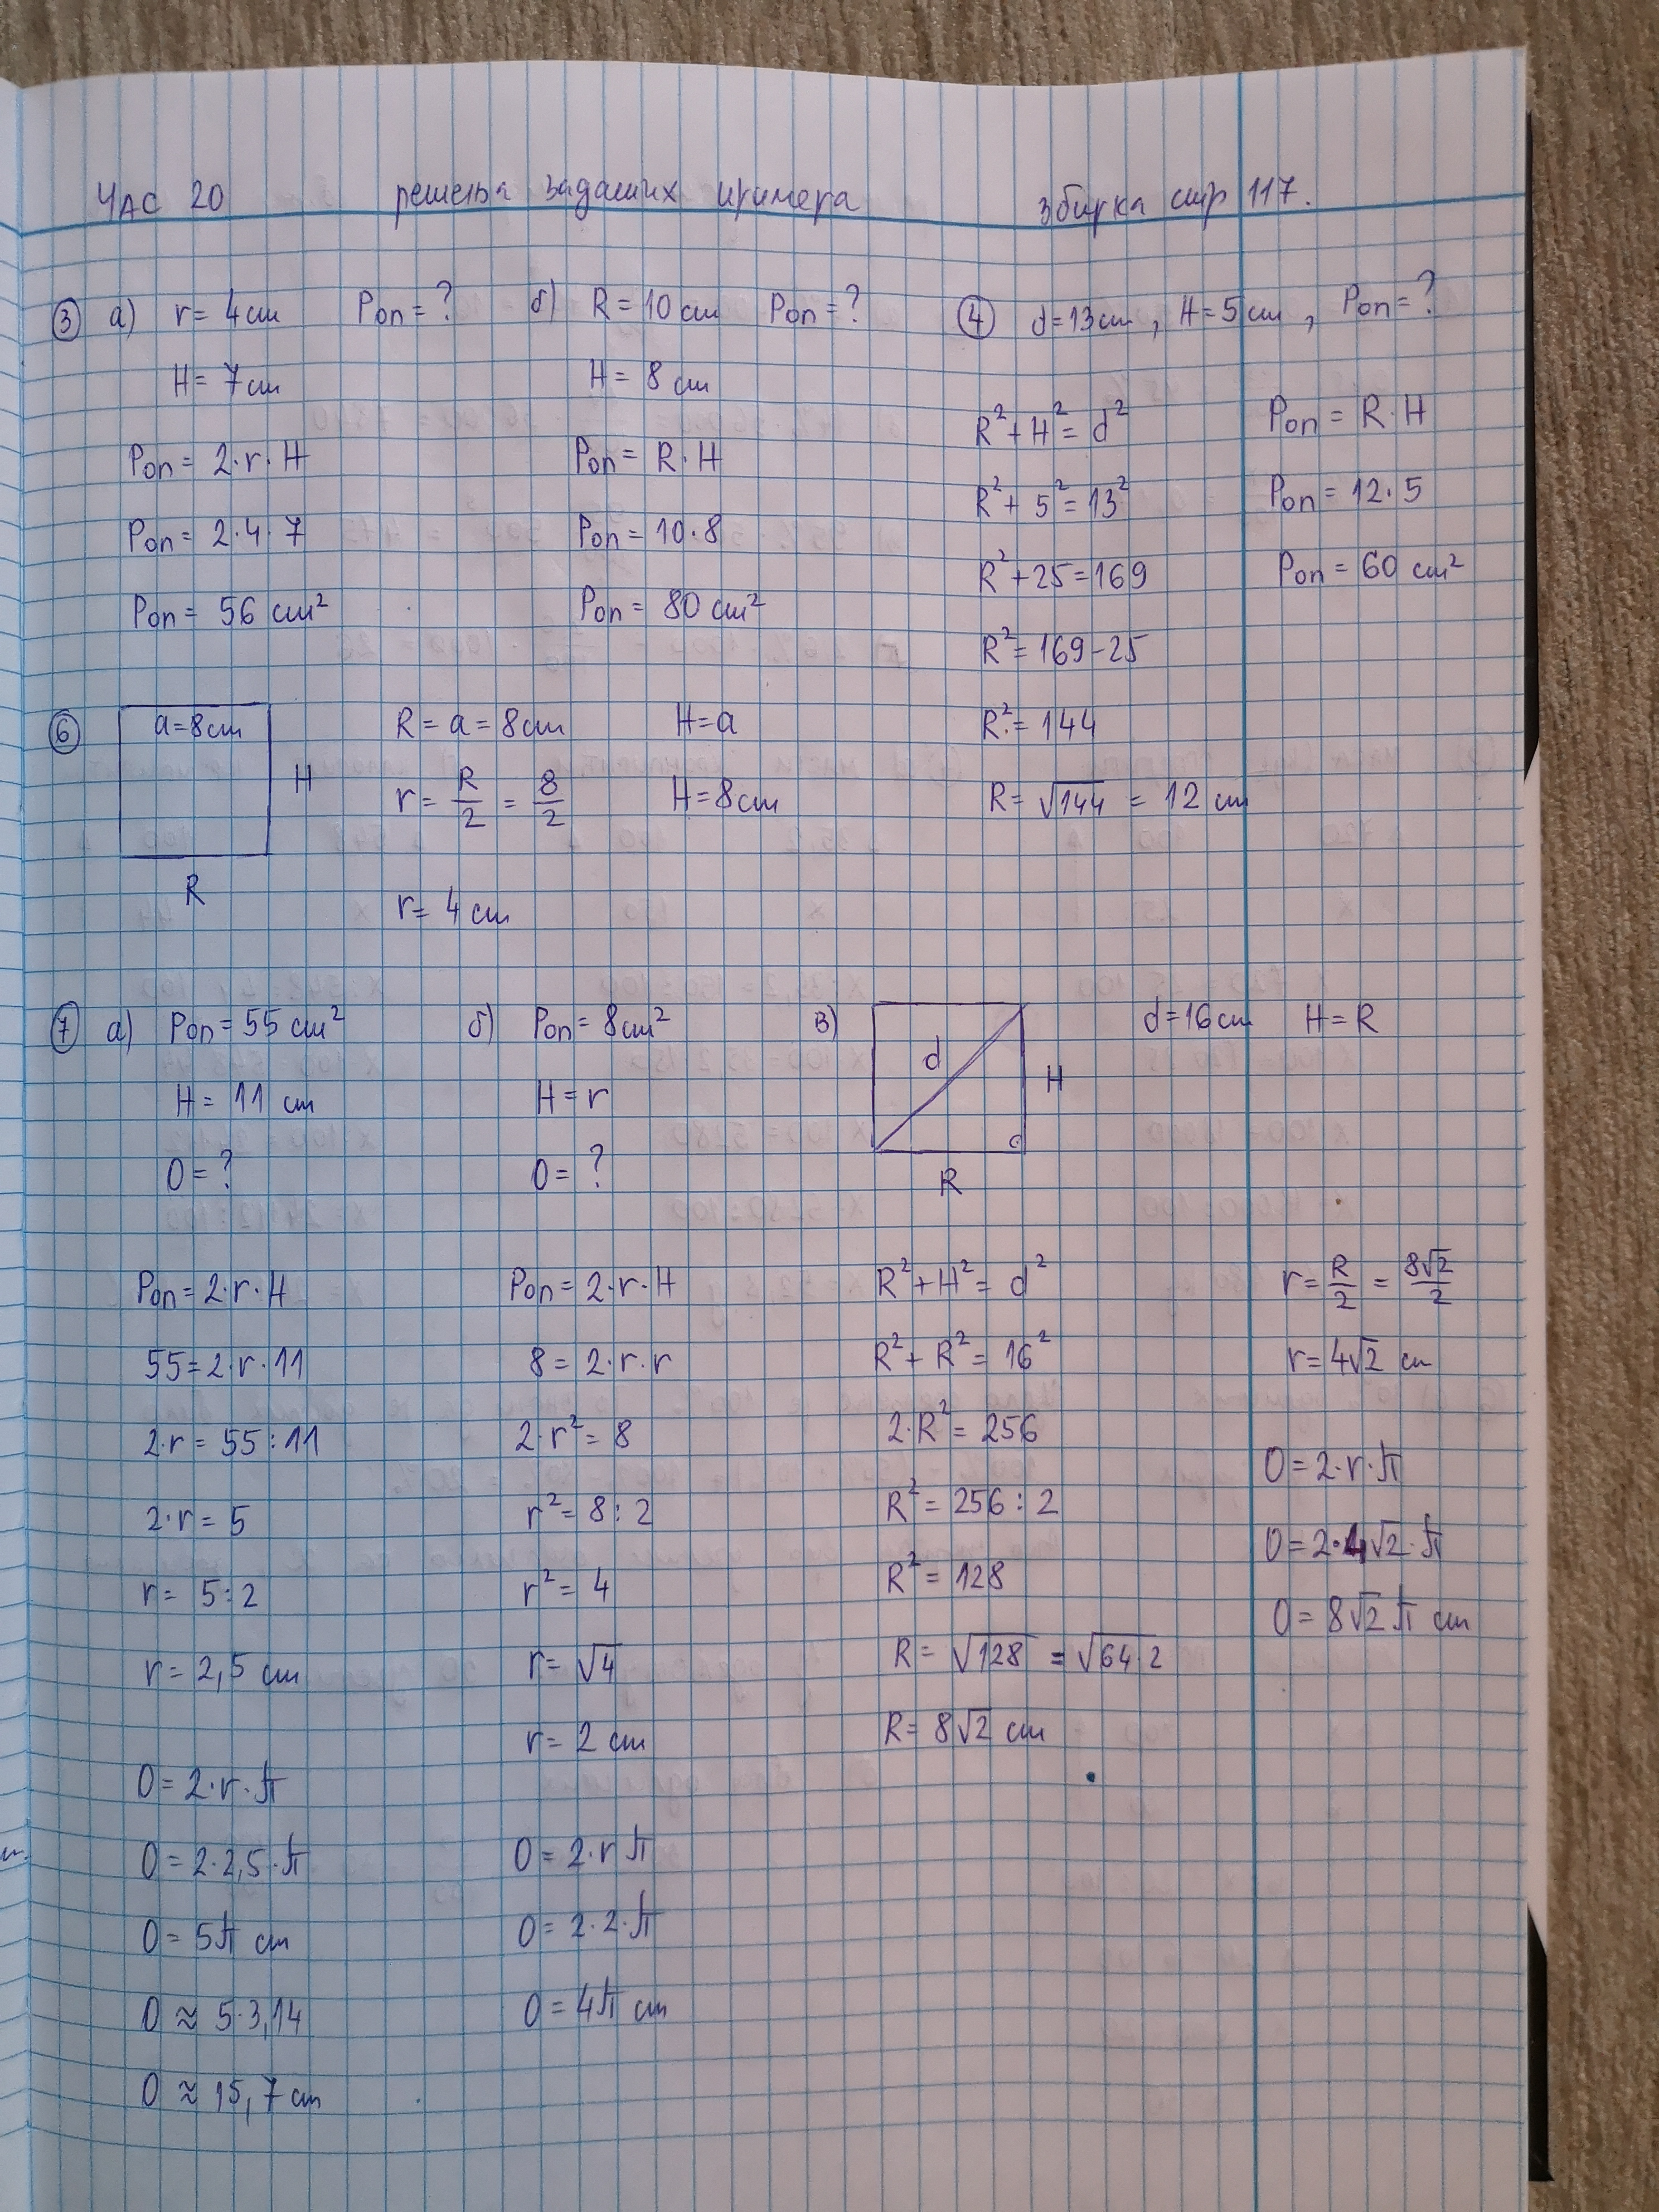 ЧАС 20 решења задатих примера збирка стр 117.
③ а) r = 4cm Pоп = ?
H = 7cm
Pоп = 2·r·H
Pоп = 2·4·7
Pоп = 56 cm²
б) R = 10cm Pоп = ?
H = 8 cm
Pоп = R·H
Pоп = 10·8
Pоп = 80 cm²
④ d=13cm, H=5cm, Pоп = ?
R² + H² = d²
R² + 5² = 13²
R² + 25 = 169
R² = 169-25
R² = 144
R = √144 = 12 cm
Pоп = R·H
Pоп = 12·5
Pоп = 60 cm²
⑥ a=8cm
H
R
R = a = 8cm
r = R/2 = 8/2
r = 4 cm
H=a
H=8cm
⑦ а) Pоп = 55 cm²
H = 11 cm
O = ?
Pоп = 2·r·H
55 = 2·r·11
2·r = 55:11
2·r = 5
r = 5:2
r = 2,5 cm
O = 2·r·π
O = 2·2,5·π
O = 5π cm
O ≈ 5·3,14
O ≈ 15,7 cm
б) Pоп = 8cm²
H = r
O = ?
Pоп = 2·r·H
8 = 2·r·r
2·r² = 8
r² = 8:2
r² = 4
r = √4
r = 2 cm
O = 2·r π
O = 2·2·π
O = 4π cm
в) d H R d=16cm H=R
R² + H² = d²
R² + R² = 16²
2·R² = 256
R² = 256:2
R² = 128
R = √128 = √64·2
R = 8√2 cm
r = R/2 = 8√2/2
r = 4√2 cm
O = 2·r·π
O = 2·4√2·π
O = 8√2 π cm